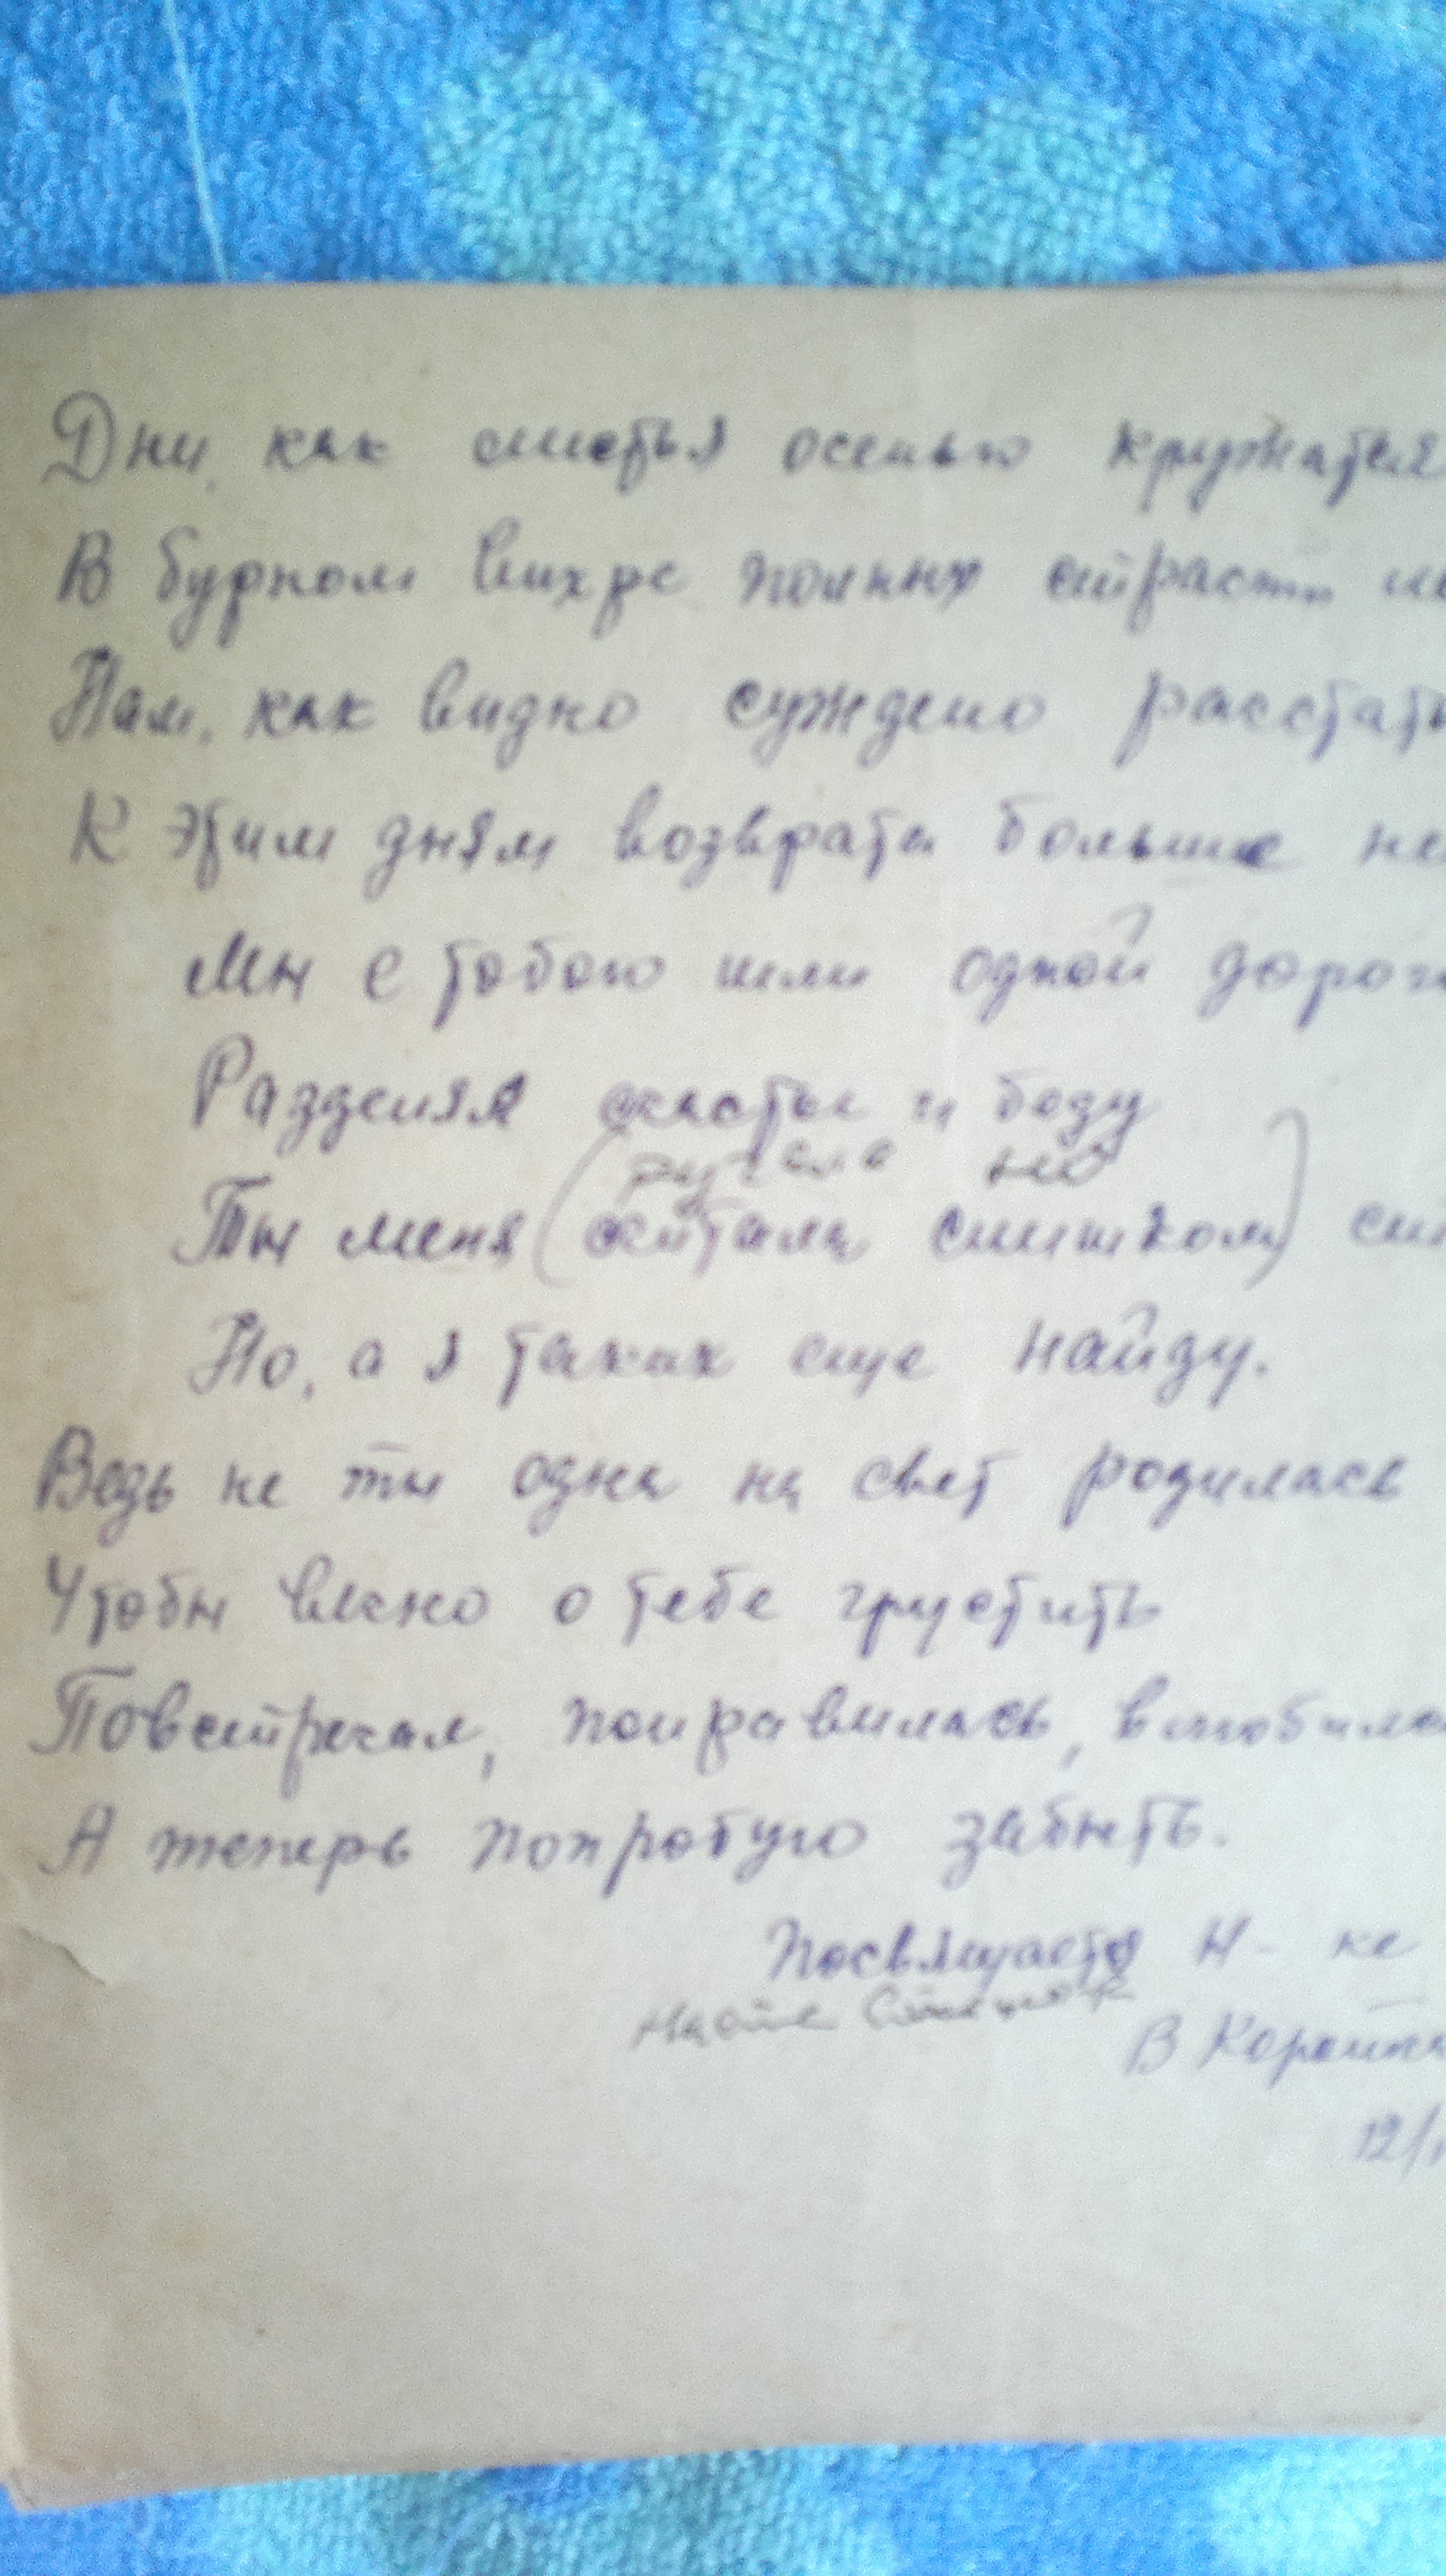 Дни, как листья осенью кружатся
В бурном вихре полных страсти
Нам, как видно суждено
К этим дням возврата больше
Мы с тобою шли одной
Разделяя счастье и беду
ругала но
Ты меня (считала слишком)
Но, а я таких еще найду.
Ведь не ты одна на свет родилась
Чтобы вечно о тебе грустить
Повстречал, понравилась,
А теперь попробую забыть.
Посвящается Н- ке
В
12/